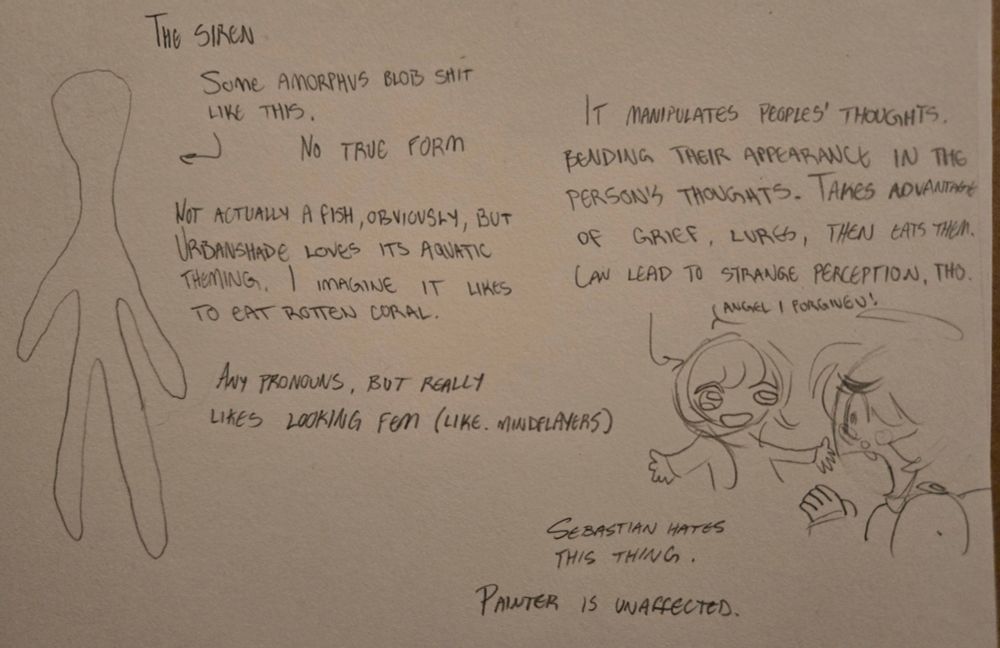 THE SIREN
SOME AMORPHUS BLOB SHIT
LIKE THIS.
NO TRUE FORM
NOT ACTUALLY A FISH, OBVIOUSLY, BUT
URBANSHADE LOVES ITS AQUATIC
THEMING. I IMAGINE IT LIKES
TO EAT ROTTEN CORAL.
ANY PRONOUNS, BUT REALLY
LIKES LOOKING FEM (LIKE. MINDFLAYERS)
IT MANIPULATES PEOPLES' THOUGHTS.
BENDING THEIR APPEARANCE IN THE
PERSON'S THOUGHTS. TAKES ADVANTAGE
OF GRIEF, LURES, THEN EATS THEM.
CAN LEAD TO STRANGE PERCEPTION, THO.
ANGEL I FORGIVEN!
SEBASTIAN HATES
THIS THING.
PAINTER IS UNAFFECTED.